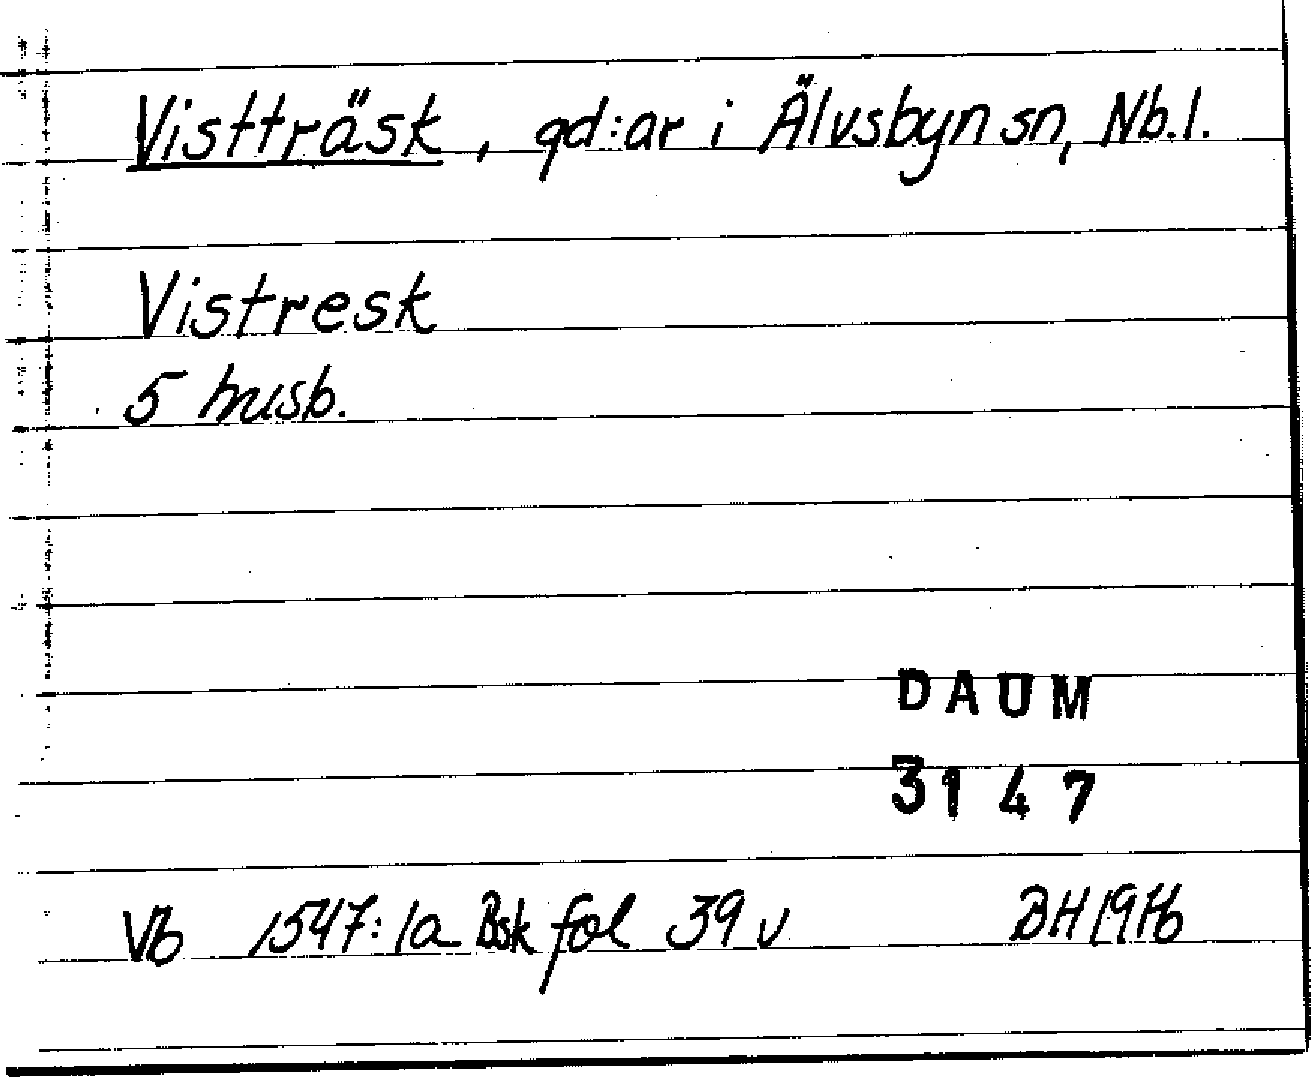 Vistträsk, gd:ar i Älvsbyn sn, Nb.l.
Vistresk
5 husb.
DAUM
3147
Vb 1547:1a Bsk fol 39 v BH 1976